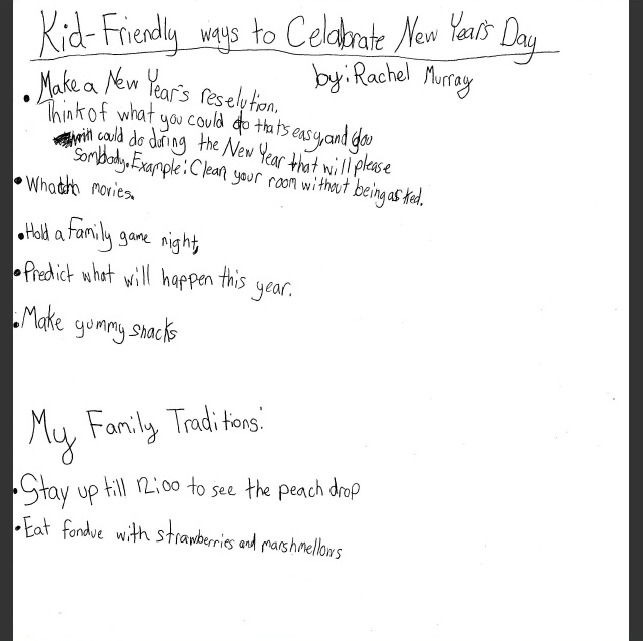 Kid-Friendly ways to Celabrate New Year's Day
by: Rachel Murray
• Make a New Year's reselution.
Think of what you could do that's easy, and you
could do during the New Year that will please
Sombody. Example: Clean your room without being asked.
• Whatch movies.
• Hold a family game night,
• Predict what will happen this year.
• Make yummy snacks
My Family Traditions:
• Stay up till 12:00 to see the peach drop
• Eat fondue with strawberries and marshmellows